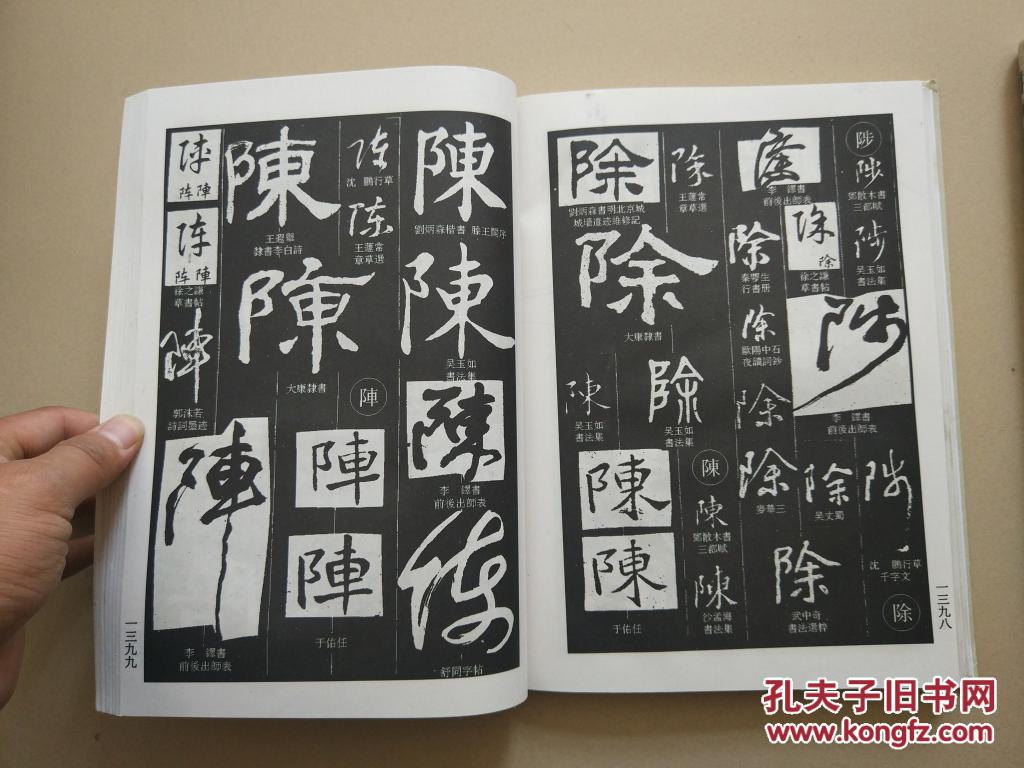 陟
陟
鄭散木書
三都賦
陟
吴玉如
書法集
陟
李鐸書
前後出師表
陟
沈鵬行草
千字文
除
一三九八
李鐸書
前後出師表
除
除
徐之謙
草書帖
除
秦咢生
行書册
除
歐陽中石
夜讀詞鈔
除
除
麥華三
除
吴丈蜀
除
武中奇
書法選粹
王蘧常
章草選
除
劉炳森書明北京城
城墙遗迹維修記
除
大康隸書
除
吴玉如
書法集
陳
陳
鄭散木書
三都賦
陳
沙孟海
書法集
陳
吴玉如
書法集
陳
陳
于佑任
陳
劉炳森楷書 滕王閣序
陳
吴玉如
書法集
陳
李鐸書
前後出師表
陳
舒同字帖
陳
沈鵬行草
陳
王蘧常
章草選
陳
王遐舉
隸書李白詩
陳
大康隸書
陣
陣
陣
于佑任
阵 陣
阵 陣
徐之謙
草書帖
陣
郭沫若
詩詞墨迹
陣
李鐸書
前後出師表
一三九九
孔夫子旧书网
www.kongfz.com